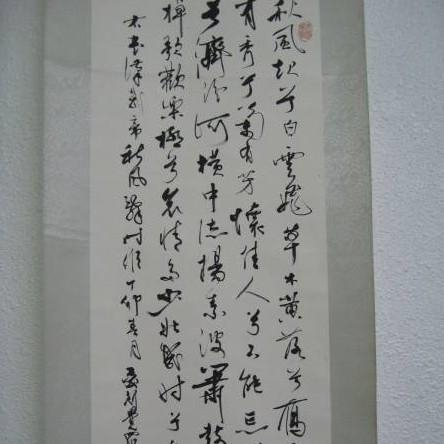 秋風起兮白雲飛草木黃落兮鴈
有秀兮菊有芳懷佳人兮不能忘
兮濟汾河橫中流揚素波簫鼓
棹歌歡樂極兮哀情多少壯幾時兮
右書漢武帝秋風辭時維丁卯春月